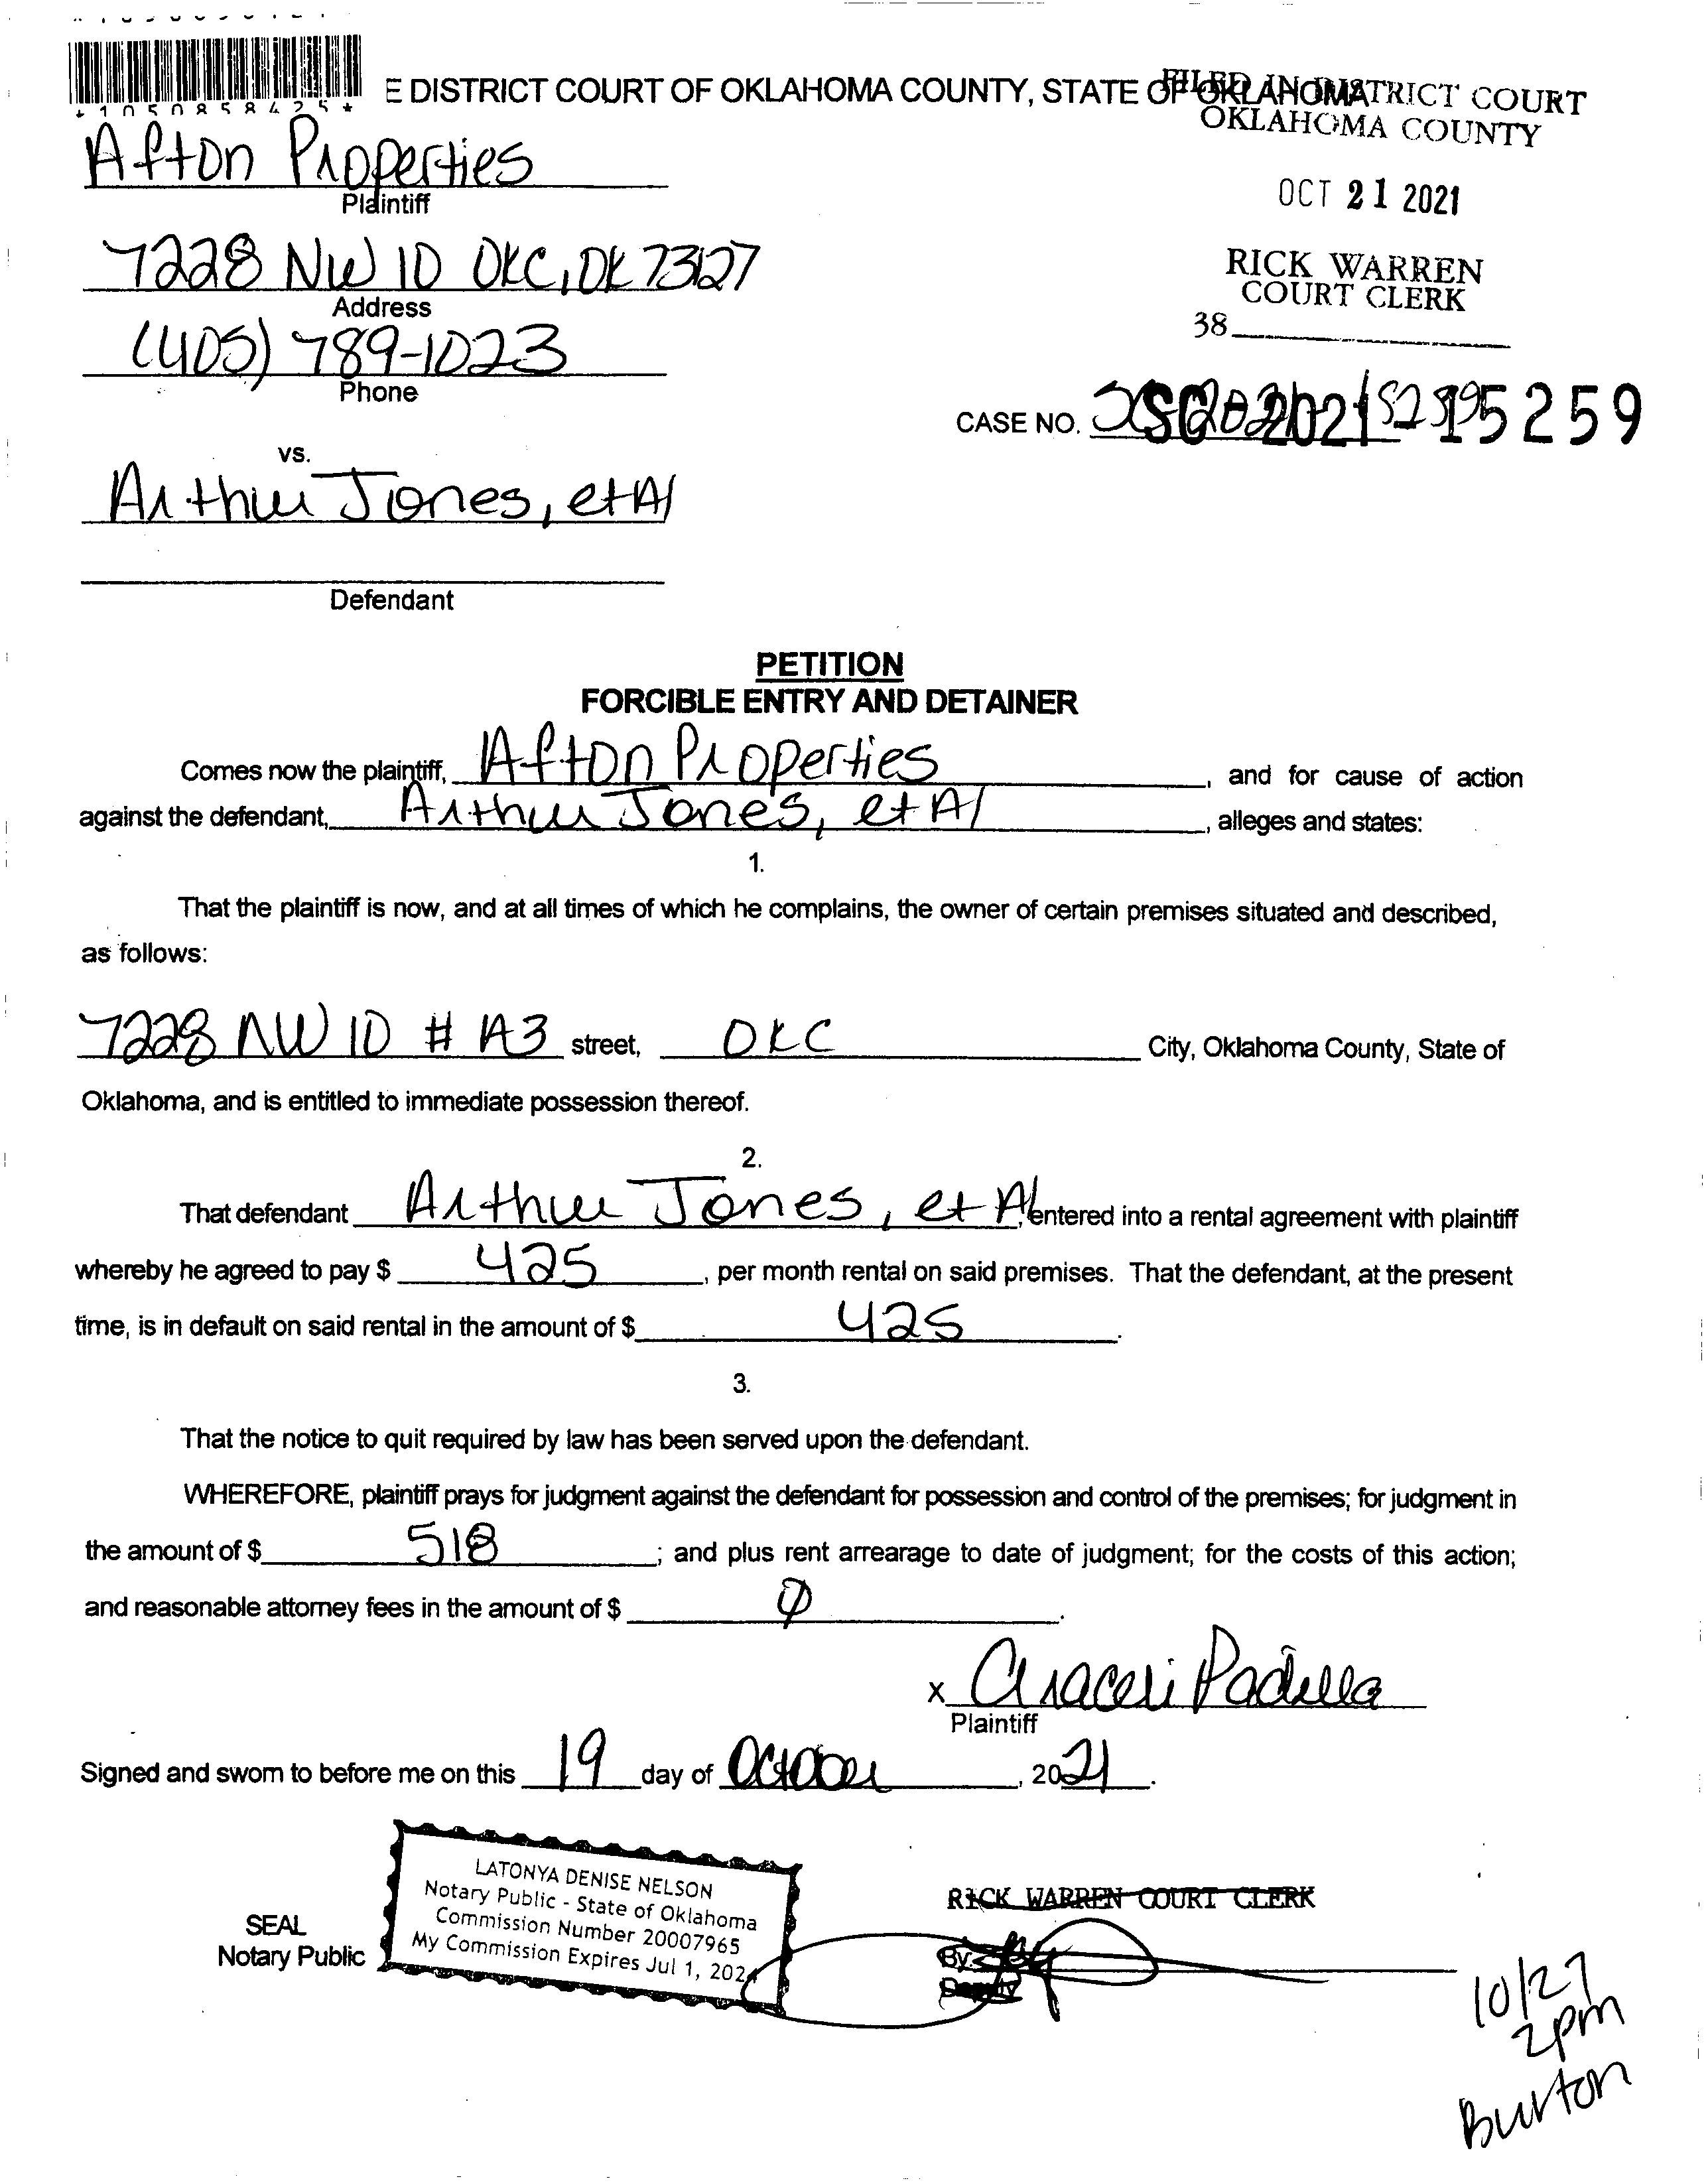 *1050858425*
E DISTRICT COURT OF OKLAHOMA COUNTY, STATE OF OKLAHOMA
FILED IN DISTRICT COURT
OKLAHOMA COUNTY
Afton Properties
Plaintiff
OCT 21 2021
7228 NW 10 OKC, OK 73127
Address
RICK WARREN
COURT CLERK
(405) 789-1023
Phone
38
CASE NO. SC-2021-15259
vs.
Arthur Jones, et Al
Defendant
PETITION
FORCIBLE ENTRY AND DETAINER
Comes now the plaintiff, Afton Properties, and for cause of action
against the defendant, Arthur Jones, et Al, alleges and states:
1.
That the plaintiff is now, and at all times of which he complains, the owner of certain premises situated and described,
as follows:
7228 NW 10 # A3 street, OKC City, Oklahoma County, State of
Oklahoma, and is entitled to immediate possession thereof.
2.
That defendant Arthur Jones, et Al, entered into a rental agreement with plaintiff
whereby he agreed to pay $ 425, per month rental on said premises. That the defendant, at the present
time, is in default on said rental in the amount of $ 425.
3.
That the notice to quit required by law has been served upon the defendant.
WHEREFORE, plaintiff prays for judgment against the defendant for possession and control of the premises; for judgment in
the amount of $ 518; and plus rent arrearage to date of judgment; for the costs of this action;
and reasonable attorney fees in the amount of $ Ø.
x Araceli Padilla
Plaintiff
Signed and sworn to before me on this 19 day of October, 2021.
LATONYA DENISE NELSON
Notary Public - State of Oklahoma
Commission Number 20007965
My Commission Expires Jul 1, 2024
SEAL
Notary Public
RICK WARREN COURT CLERK
By:
Deputy
10/27
2pm
Burton